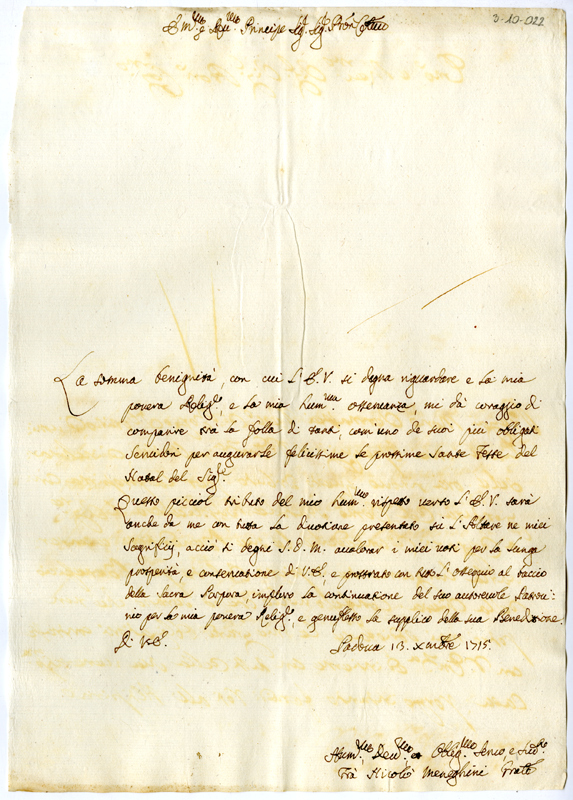 3-10-022
Em.mo e Rev.mo Principe Sig. Sig. Pron Col.mo
La somma benignità, con cui l'E.V. si degna riguardare e la mia
povera Relig.e, e la mia hum.ma osservanza, mi dà coraggio di
comparire trà la folla di tanti, com'uno de suoi più obligati
Servidori per augurarle felicissime le prossime Sante Feste del
Natal del Sig.re
Questo picciol tributo del mio hum.mo rispetto verso l'E.V. sarà
anche da me con tutta la divotione presentato sù l'Altare ne miei
Sagrificij, acciò si degni S.D.M. avvalorar i miei voti per la lunga
prosperità, e conservatione di V.E., e prostrato con tutto l'ossequio al baccio
della Sacra Porpora, imploro la continuatione del suo autorevole Patroci:
nio per la mia povera Relig.e, e genuflesso la supplico della sua Benedizione.
Di V.E.
Padova 13. Xmbre 1715.
Hum.mo Dev.mo Oblig.mo Servo, e
Frà Nicolò Meneghini